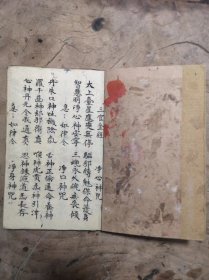 淨心神咒
太上臺星應變無停　驅邪縛魅保命護身
智慧明淨心神安寧　三魂永久魄無喪傾
急〻如律令　淨口神咒
丹朱口神吐穢除氛　舌神正倫通命養神
羅千齒神却邪衛真　喉神虎賁炁神引津
心神丹元令我通真　思神鍊液道炁長存
急〻如律令　淨身神咒